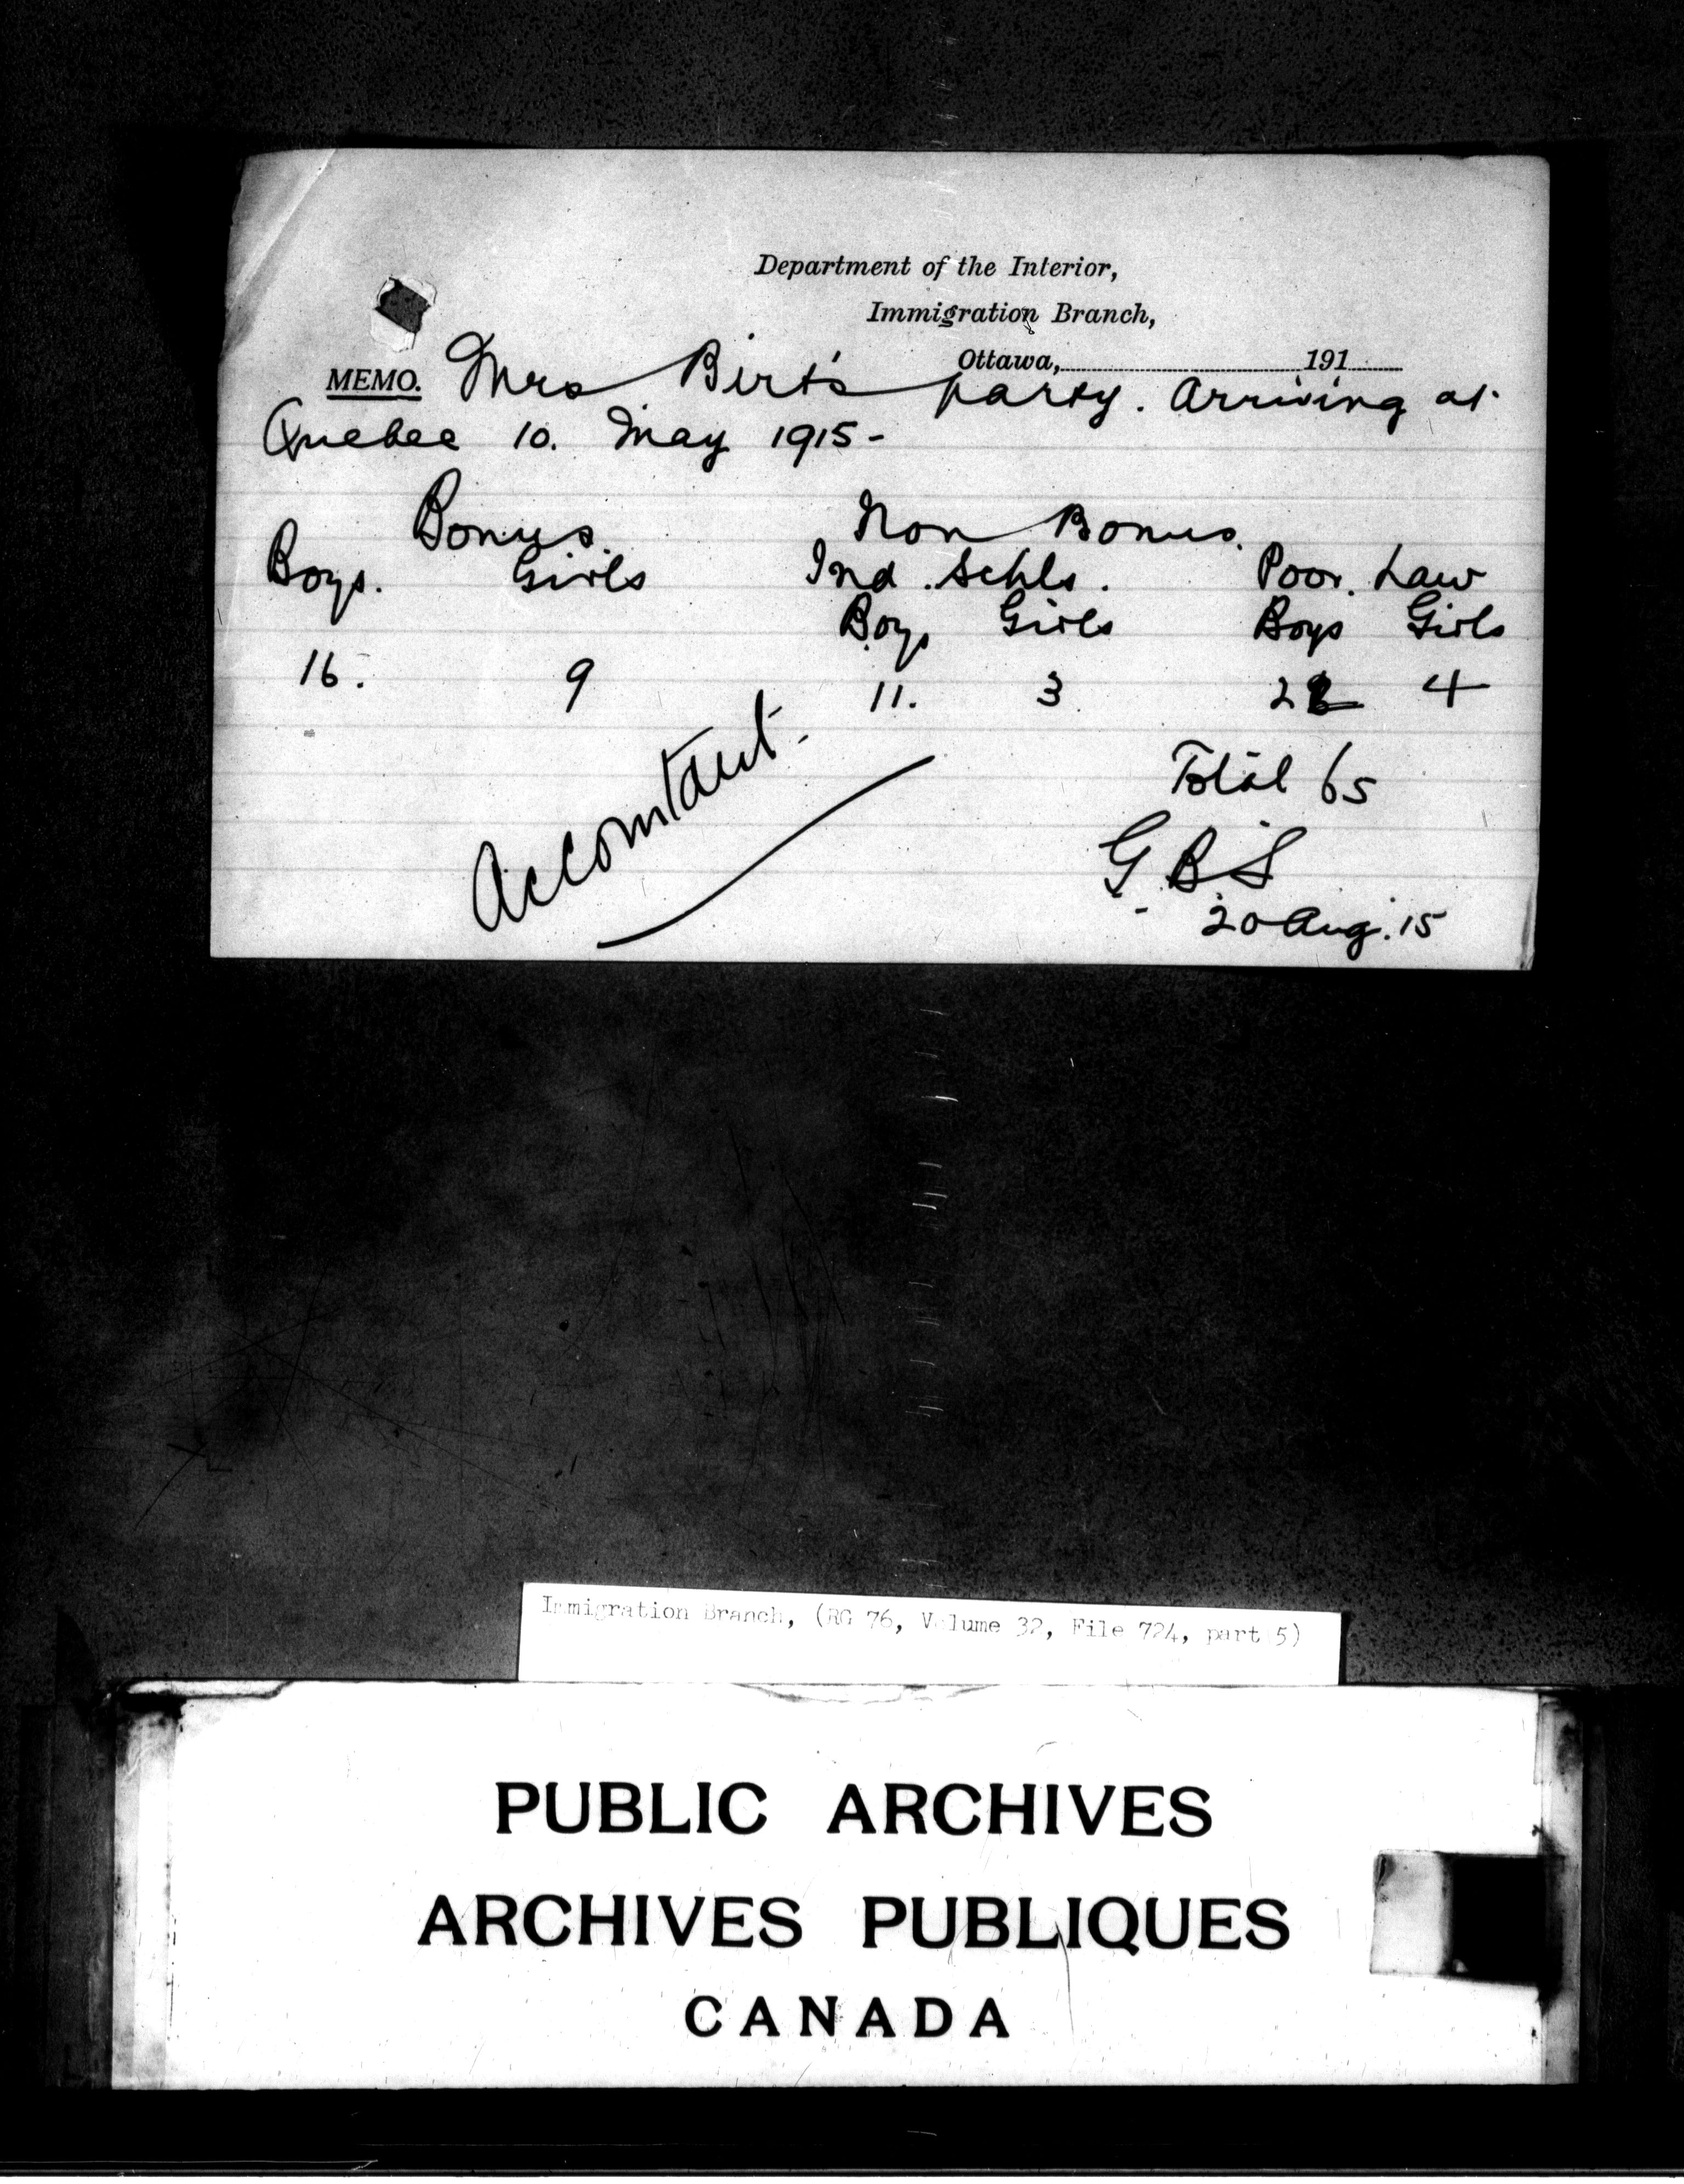 Department of the Interior,
Immigration Branch,
Ottawa, 191
MEMO. Mrs Birt's party. Arriving at
Quebec 10. May 1915-
Bonus. Non Bonus.
Boys. Girls Ind. Schls. Poor. Law
Boys Girls Boys Girls
16. 9 11. 3 22 4
Total 65
Accountant-
G.B.S
20 Aug. 15
Immigration Branch, (RG 76, Volume 32, File 724, part 5)
PUBLIC ARCHIVES
ARCHIVES PUBLIQUES
CANADA